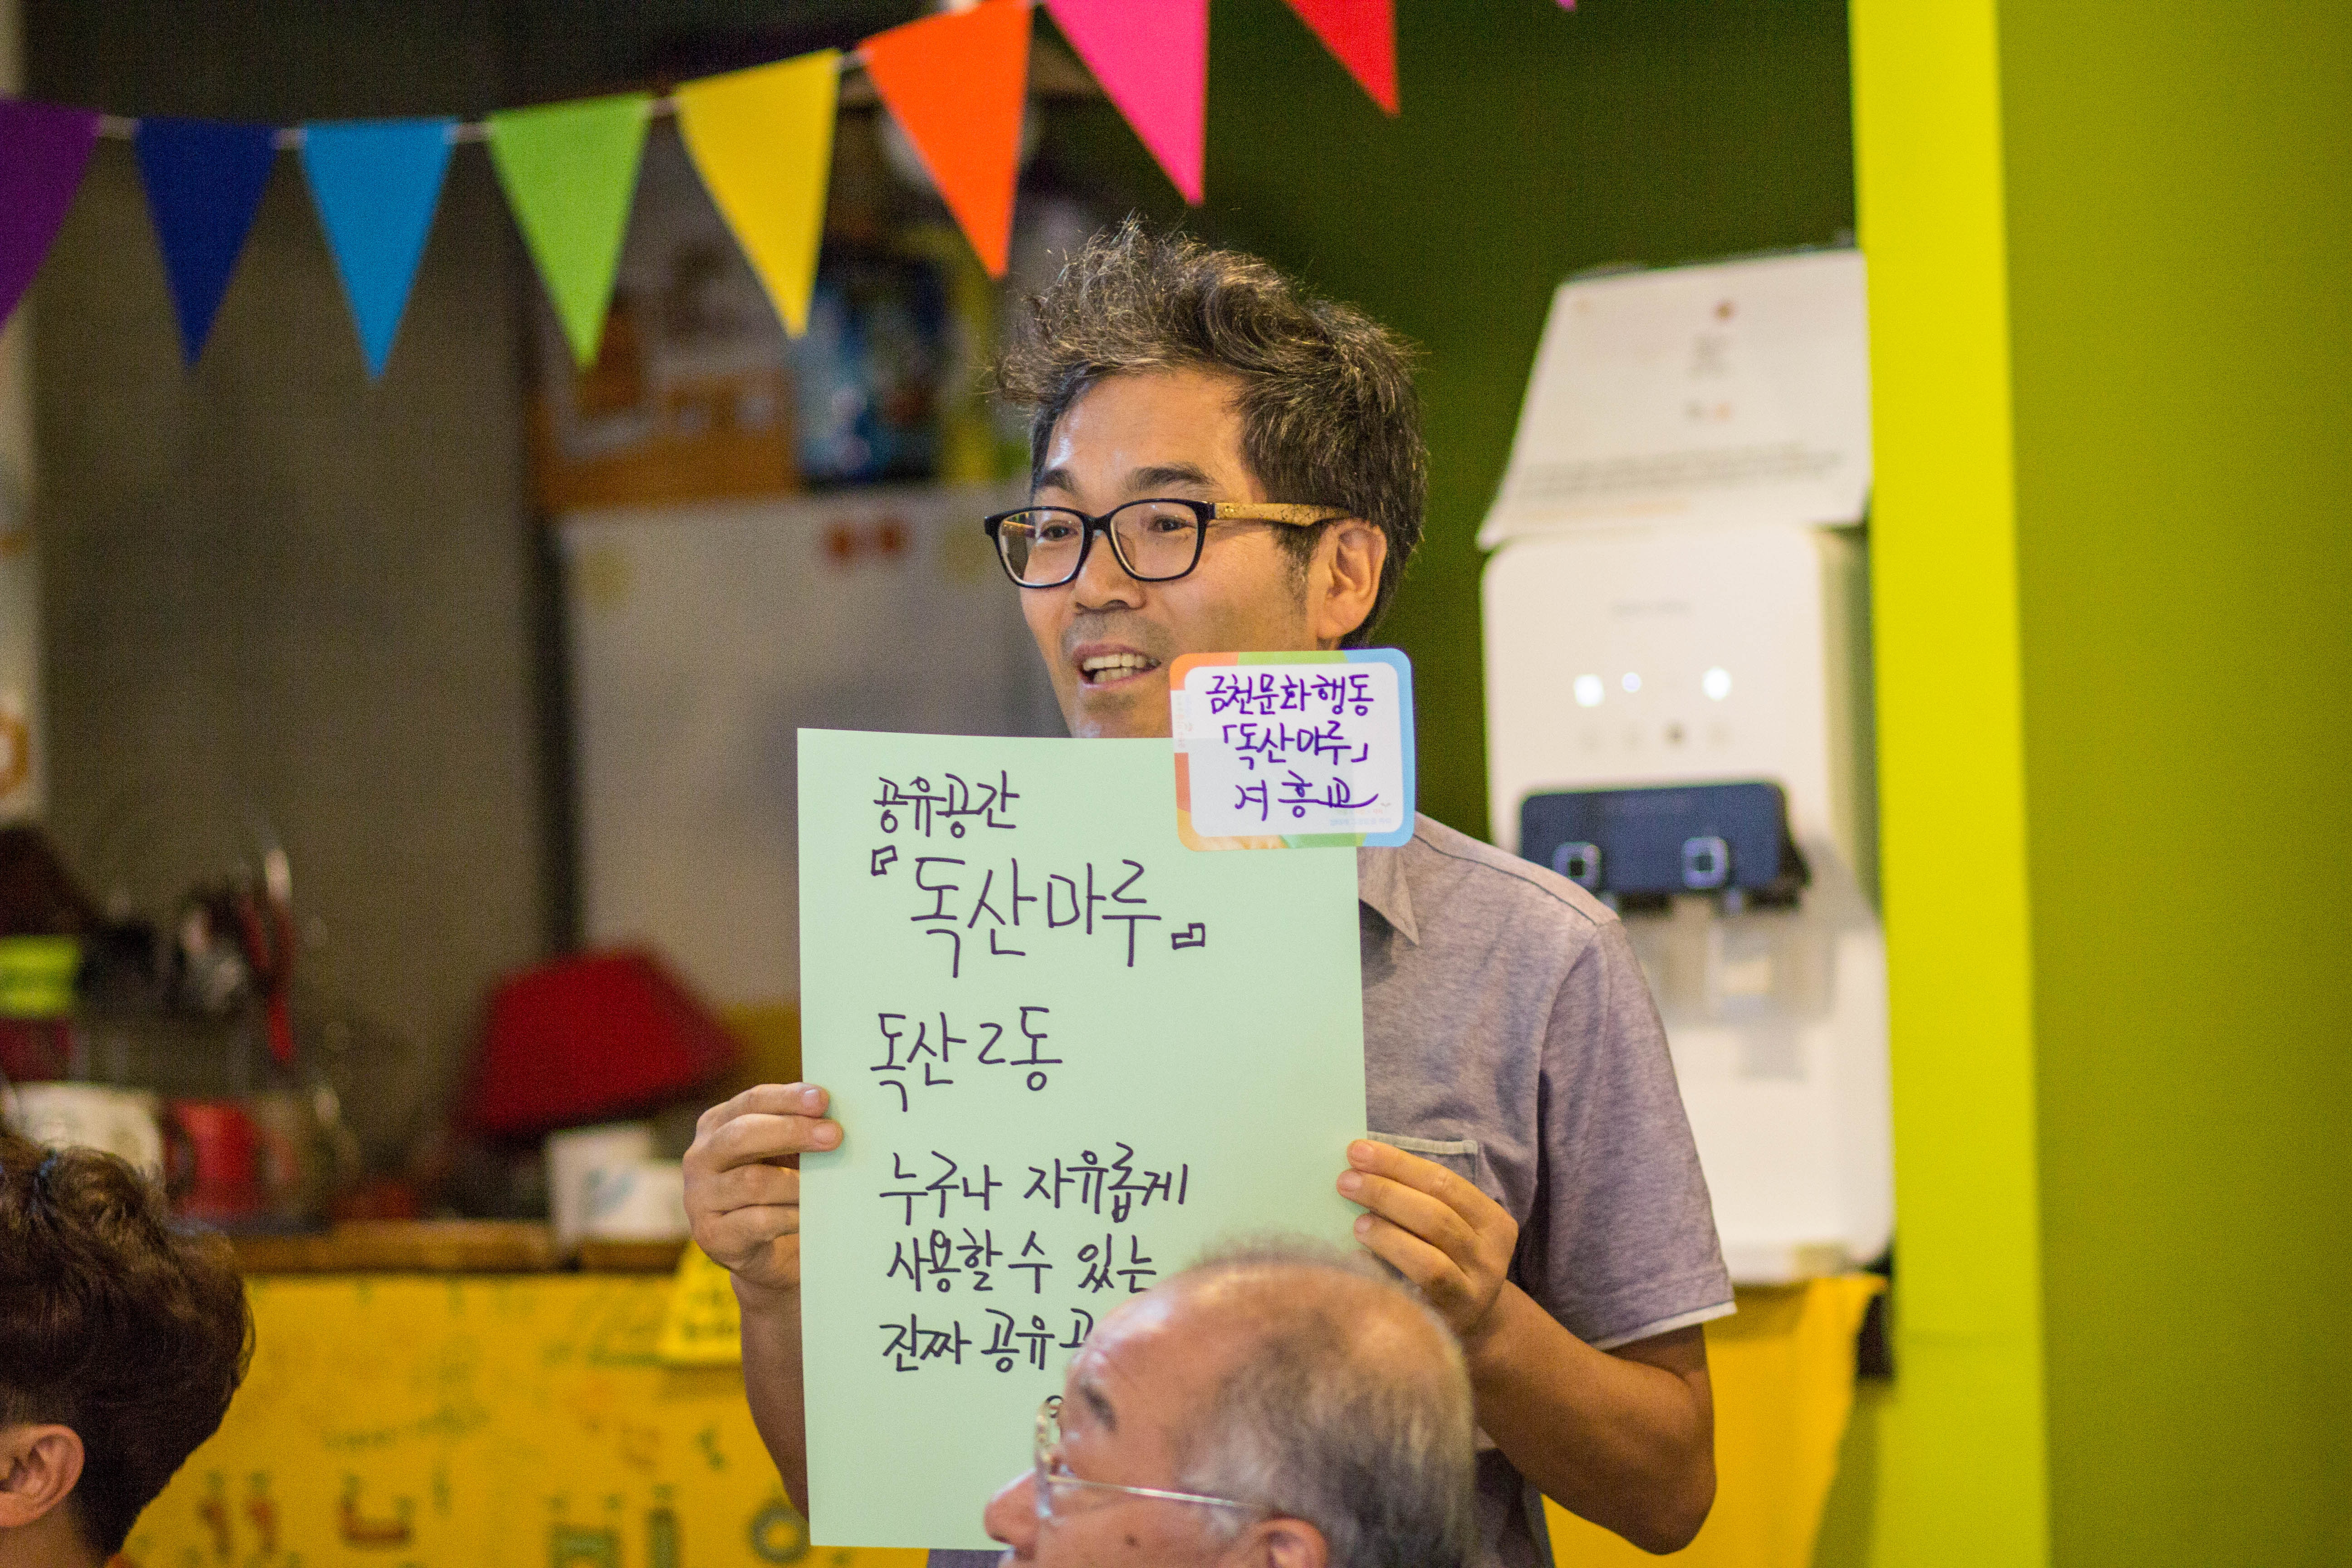 금천문화행동
「독산마루」
공유공간
『독산마루』
독산2동
누구나 자유롭게
사용할 수 있는
진짜 공유